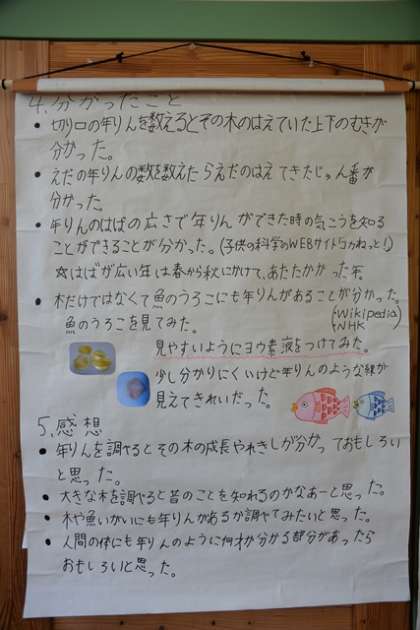 4.分かったこと
• 切り口の年りんを数えるとその木のはえていた上下のむきが
分かった。
• えだの年りんの数を数えたらえだのはえてきたじゅん番が
分かった
• 年りんのはばの広さで年りんができた時の気こうを知る
ことができることが分かった。(子供の科学のWEBサイト
☆はばが広い年は春から秋にかけて、あたたかかった年
• 木だけではなくて魚のうろこにも年りんがあることが分かった。
魚のうろこを見てみた。
(Wikipedia
NHK)
見やすいようにヨウ素液をつけてみた。
少し分かりにくいけど年りんのような線が
見えてきれいだった。
5.感想
• 年りんを調べるとその木の成長やれきしが分かっておもしろい
と思った。
• 大きな木を調べると昔のことを知れるのかなあーと思った。
• 木や魚いがいにも年りんがあるか調べてみたいと思った。
• 人間の体にも年りんのように何才か分かる部分があったら
おもしろいと思った。